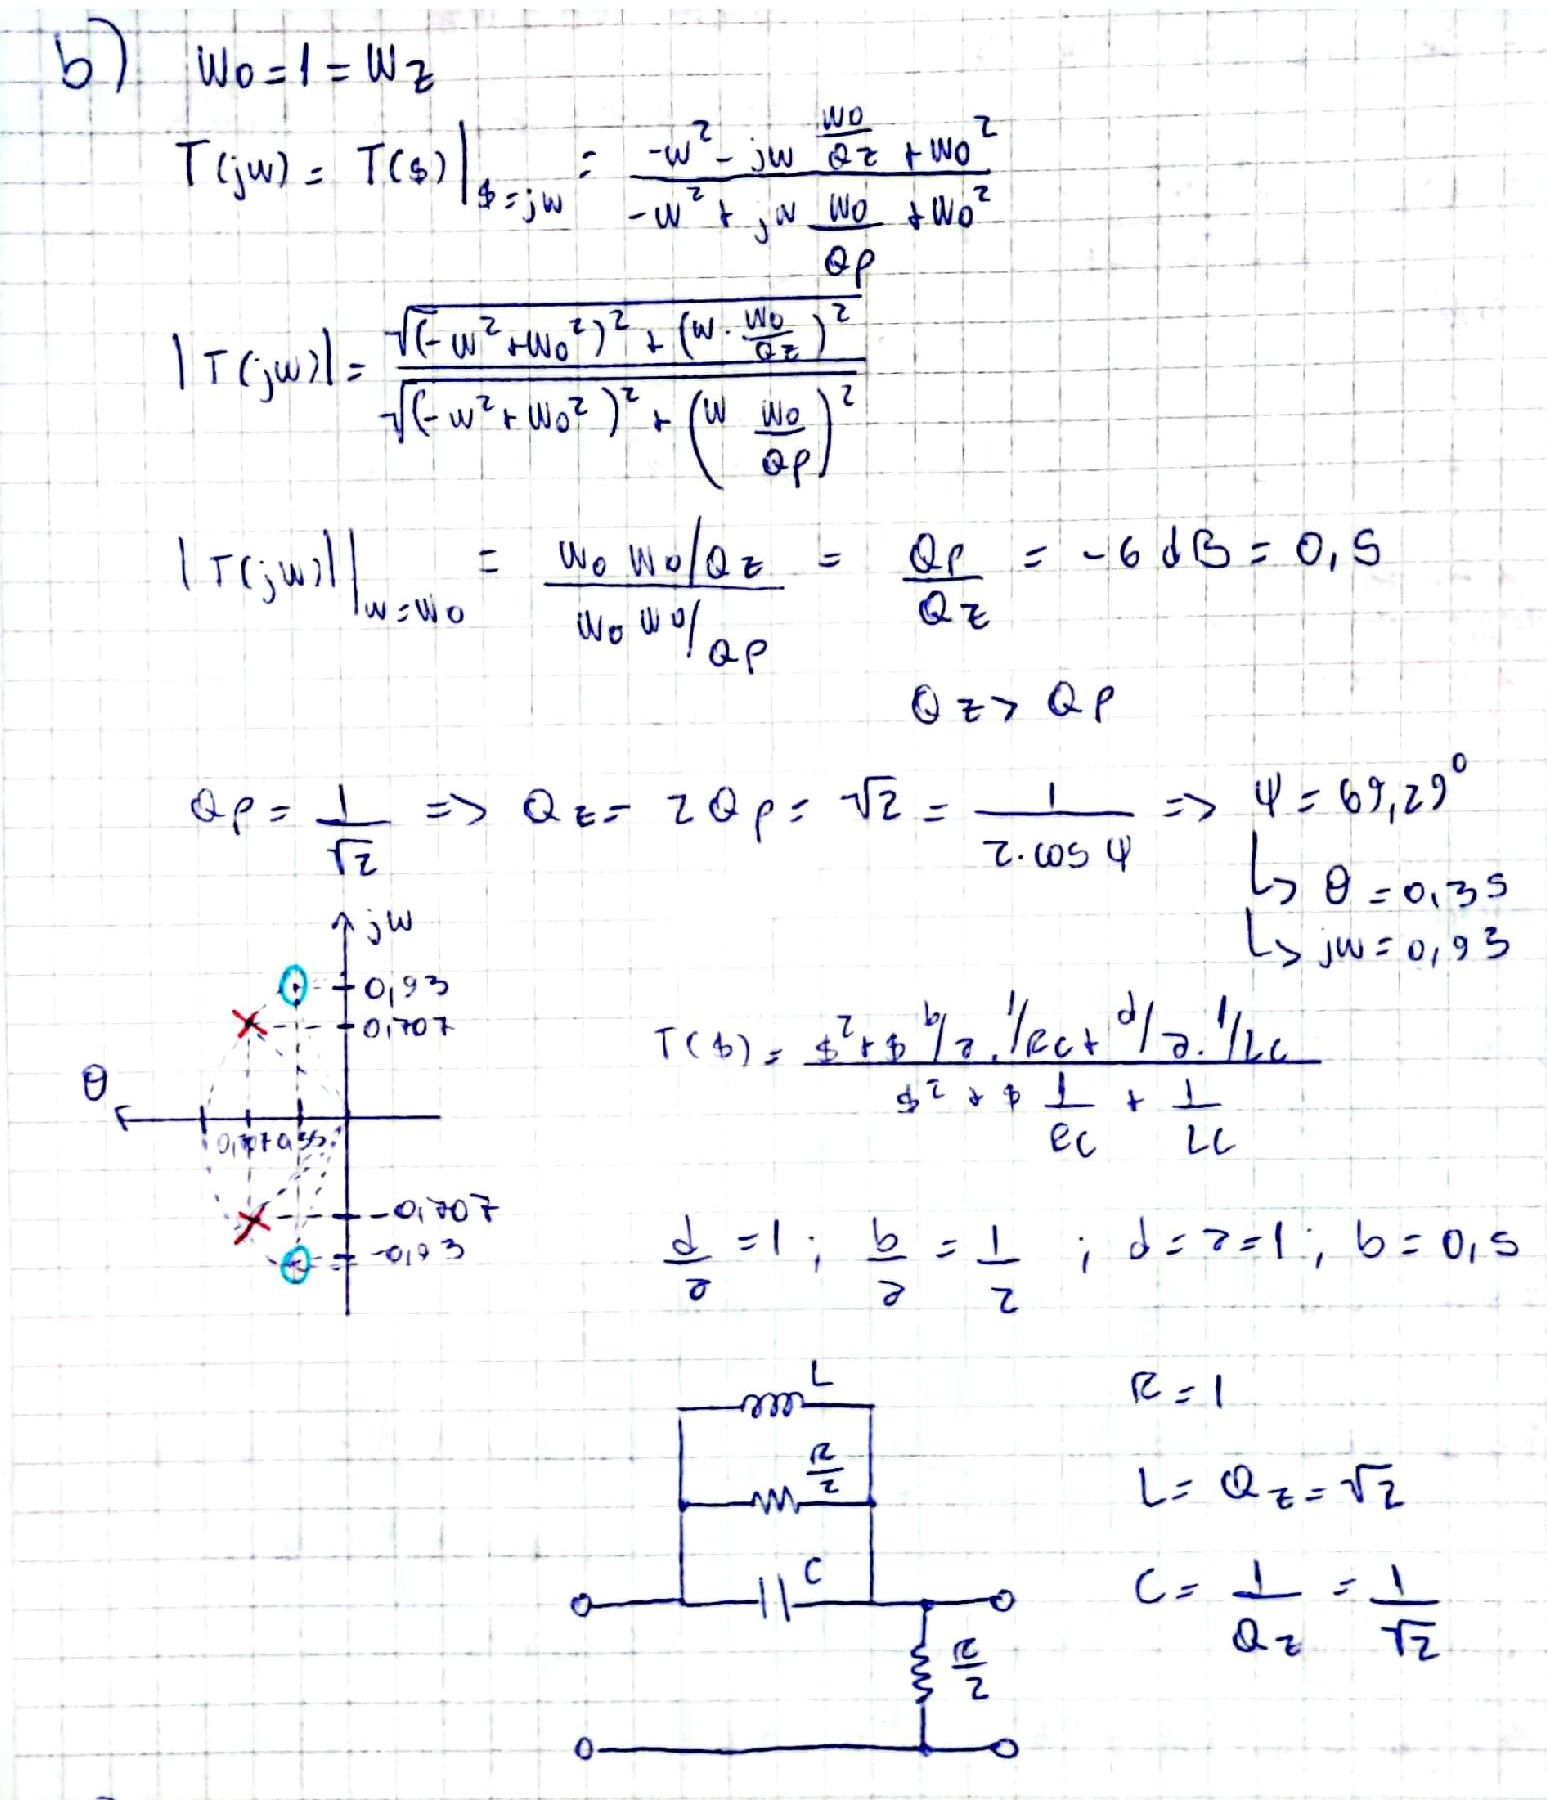 b) W0 = 1 = Wz
T(jw) = T($)|$=jw = (-w² - jw W0/Qz + W0²) / (-w² + jw W0/Qp + W0²)
|T(jw)| = √((-w² + W0²)² + (w · W0/Qz)²) / √((-w² + W0²)² + (w W0/Qp)²)
|T(jw)||w=W0 = (W0 W0/Qz) / (W0 W0/Qp) = Qp/Qz = -6 dB = 0,5
Qz > Qp
Qp = 1/√2 => Qz = 2Qp = √2 = 1/(2·cos Ψ) => Ψ = 69,29°
↳ θ = 0,35
↳ jw = 0,93
jw
0,93
0,707
θ
0,707 0,35
-0,707
-0,93
T($) = ($² + $ b/a · 1/RC + d/a · 1/LC) / ($² + $ 1/RC + 1/LC)
d/a = 1 ; b/a = 1/2 ; d = a = 1 ; b = 0,5
L
R/2
C
R/2
R = 1
L = Qz = √2
C = 1/Qz = 1/√2